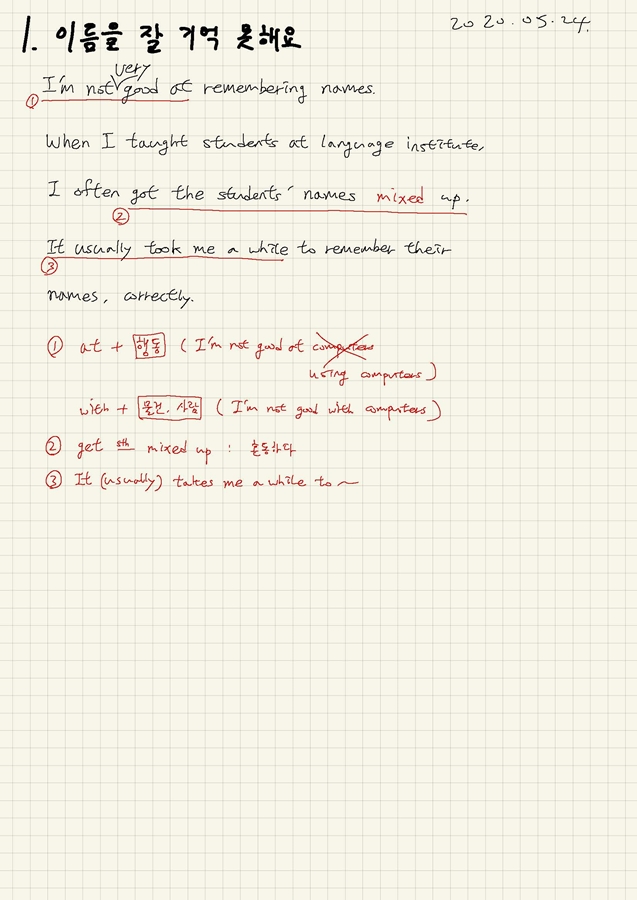 1. 이름을 잘 기억 못해요
2020.05.24.
very
I'm not good at remembering names.
①
When I taught students at language institute,
I often got the students' names mixed up.
②
It usually took me a while to remember their
③
names, correctly.
① at + 행동 ( I'm not good at computers
using computers )
with + 물건, 사람 ( I'm not good with computers )
② get sth mixed up : 혼동하다
③ It (usually) takes me a while to ~